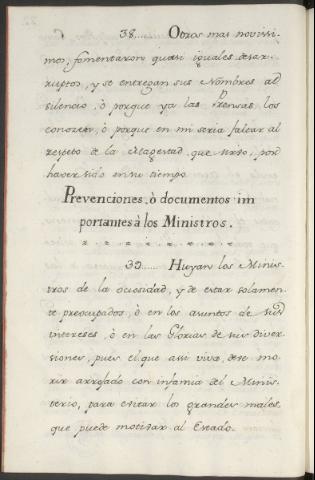 38..... Otros mas novissi-
mos, fomentaron quasi iguales desar-
ruptos, y se entregan sus Nombres al
silencio, ò porque ya las Prensas los
conocen, ò porque en mi seria faltar al
respeto de la Magestad que sirvo, por
haver sido en su tiempo.
Prevenciones, ò documentos im
portantes à los Ministros.
39..... Huyan los Minis-
tros de la ociosidad, y de estar solamen-
te preocupados, ò en los asuntos de sus
intereses, ò en las Glorias de sus diver-
siones, pues el que assi viva, deve mo-
rir arrojado con infamia del Minis-
terio, para evitar los grandes males,
que puede motivar al Estado.